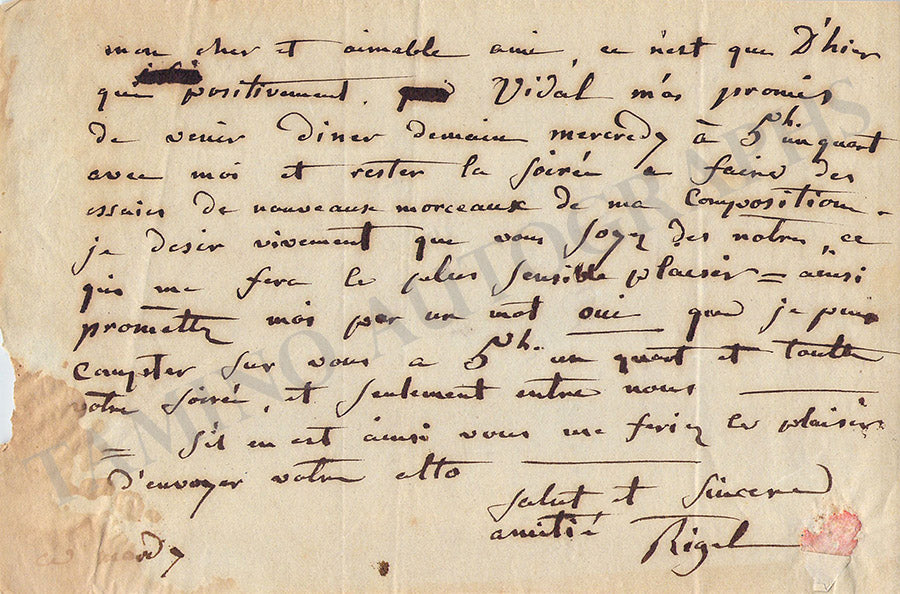 mon cher et aimable ami ce n'est que D'hier
que positivement, que Vidal m'as promis
de venir diner demain mercredy à 5h. un quart
avec moi et rester la soirée a faire des
essaies de nouveaux morceaux de ma Composition.
je desir vivement que vous soyez des notres, ce
qui me fera le plus sensible plaisir = ainsi
promettez moi par un mot oui que je puis
compter sur vous a 5h. un quart et toutte
votre soirée, et seulement entre nous
= s'il en est ainsi vous me feriez le plaisir
d'envoyer votre alto
salut et sincere
amitié Rigel
ce mardy
TAMINO AUTOGRAPHS